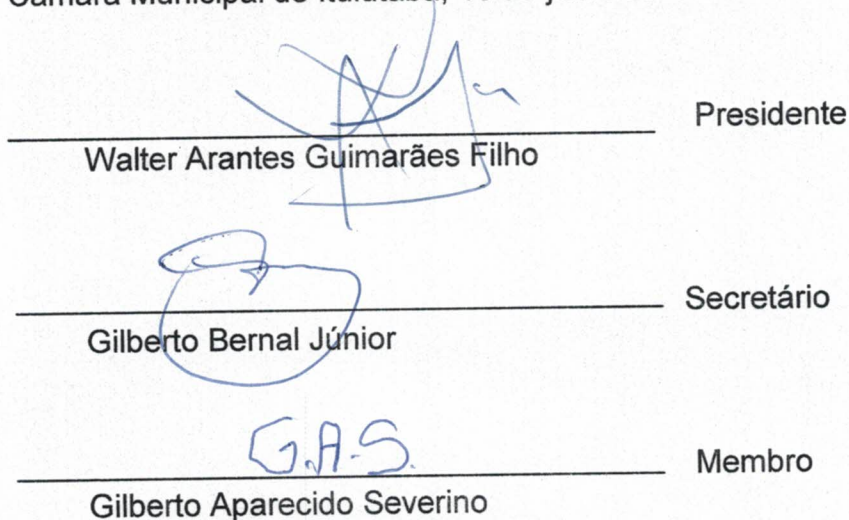 Presidente
Walter Arantes Guimarães Filho
Secretário
Gilberto Bernal Júnior
G.A.S.
Membro
Gilberto Aparecido Severino